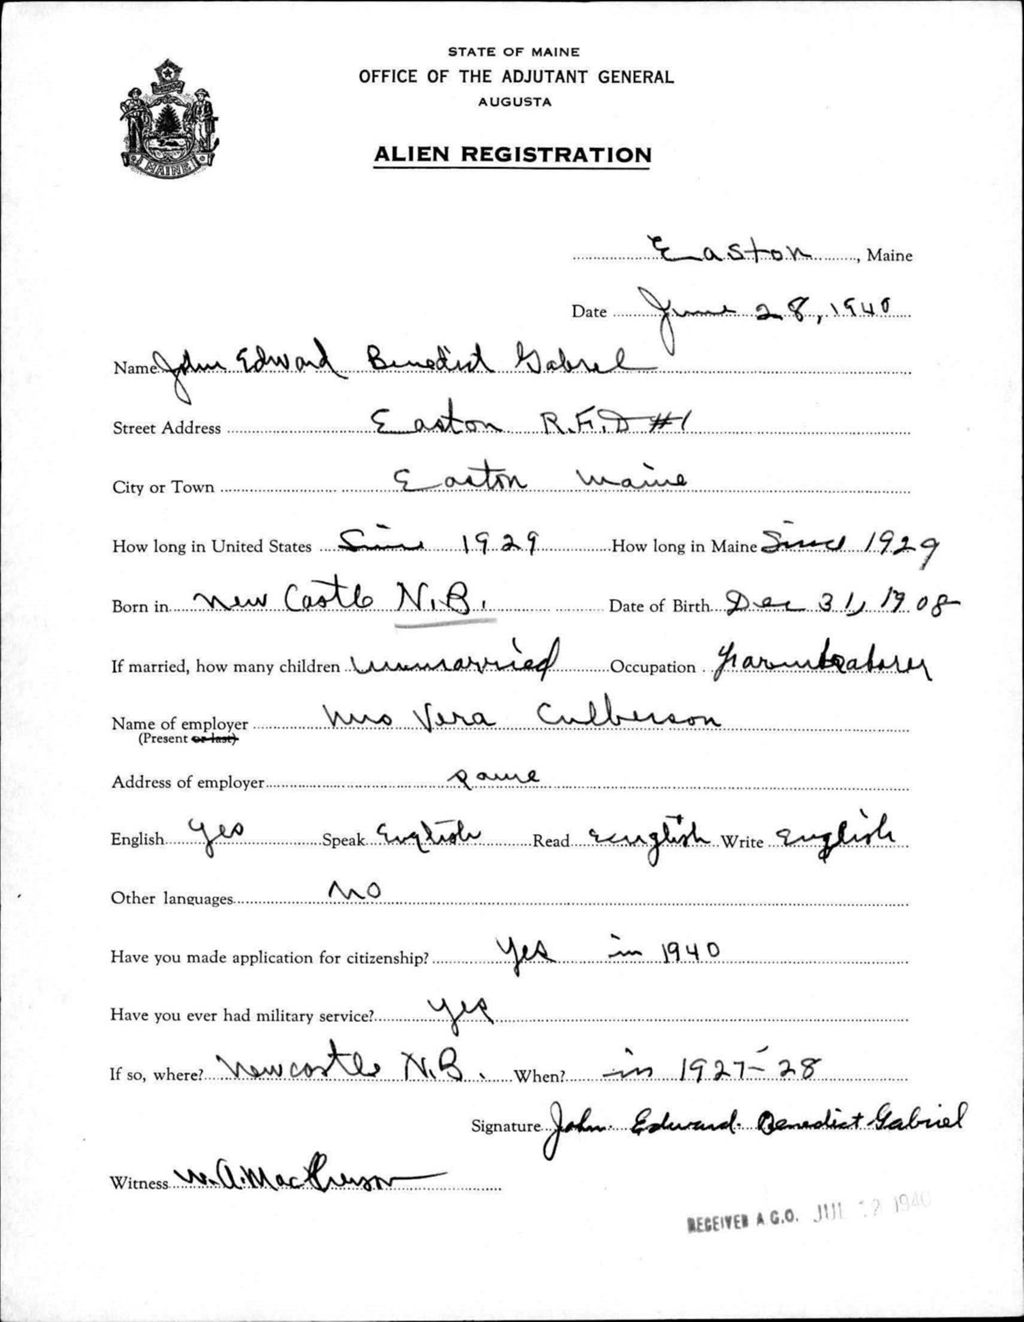 STATE OF MAINE
OFFICE OF THE ADJUTANT GENERAL
AUGUSTA
MAINE
ALIEN REGISTRATION
Easton, Maine
Date June 28, 1940
Name John Edward Benedict Gabriel
Street Address Easton R.F.D #1
City or Town Easton Maine
How long in United States Since 1929 How long in Maine Since 1929
Born in New Castle N.B. Date of Birth Dec 31, 1908
If married, how many children Unmarried Occupation Farm Laborer
Name of employer Mrs Vera Culberson
(Present or last)
Address of employer same
English Yes Speak English Read English Write English
Other languages No
Have you made application for citizenship? Yes in 1940
Have you ever had military service? Yes
If so, where? Newcastle N.B. When? in 1927-28
Signature John Edward Benedict Gabriel
Witness W.A. MacPherson
RECEIVED A.G.O. 1940